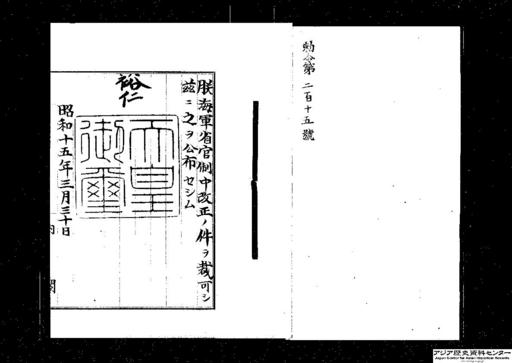 勅令第二百十五號
朕海軍省官制中改正ノ件ヲ裁可シ
茲ニ之ヲ公布セシム
裕仁
天皇御璽
昭和十五年三月三十日
内閣
アジア歴史資料センター
Japan Center for Asian Historical Records